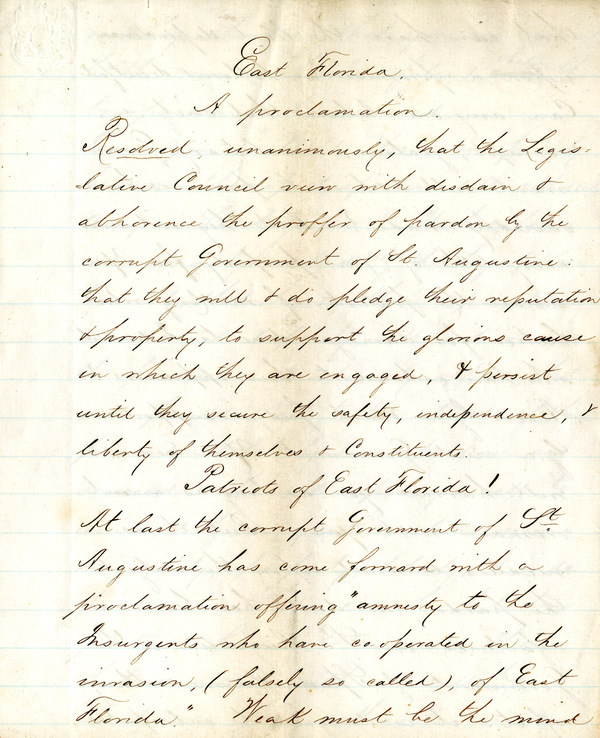 East Florida.
A proclamation.
Resolved, unanimously, that the Legis-
lative Council view with disdain &
abhorence the proffer of pardon by the
corrupt Government of St. Augustine:
that they will & do pledge their reputation
& property, to support the glorious cause
in which they are engaged, & persist
until they secure the safety, independence, &
liberty of themselves & Constituents.
Patriots of East Florida!
At last the corrupt Government of St.
Augustine has come forward with a
proclamation offering "amnesty to the
Insurgents who have co-operated in the
invasion, (falsely so called), of East
Florida." Weak must be the mind